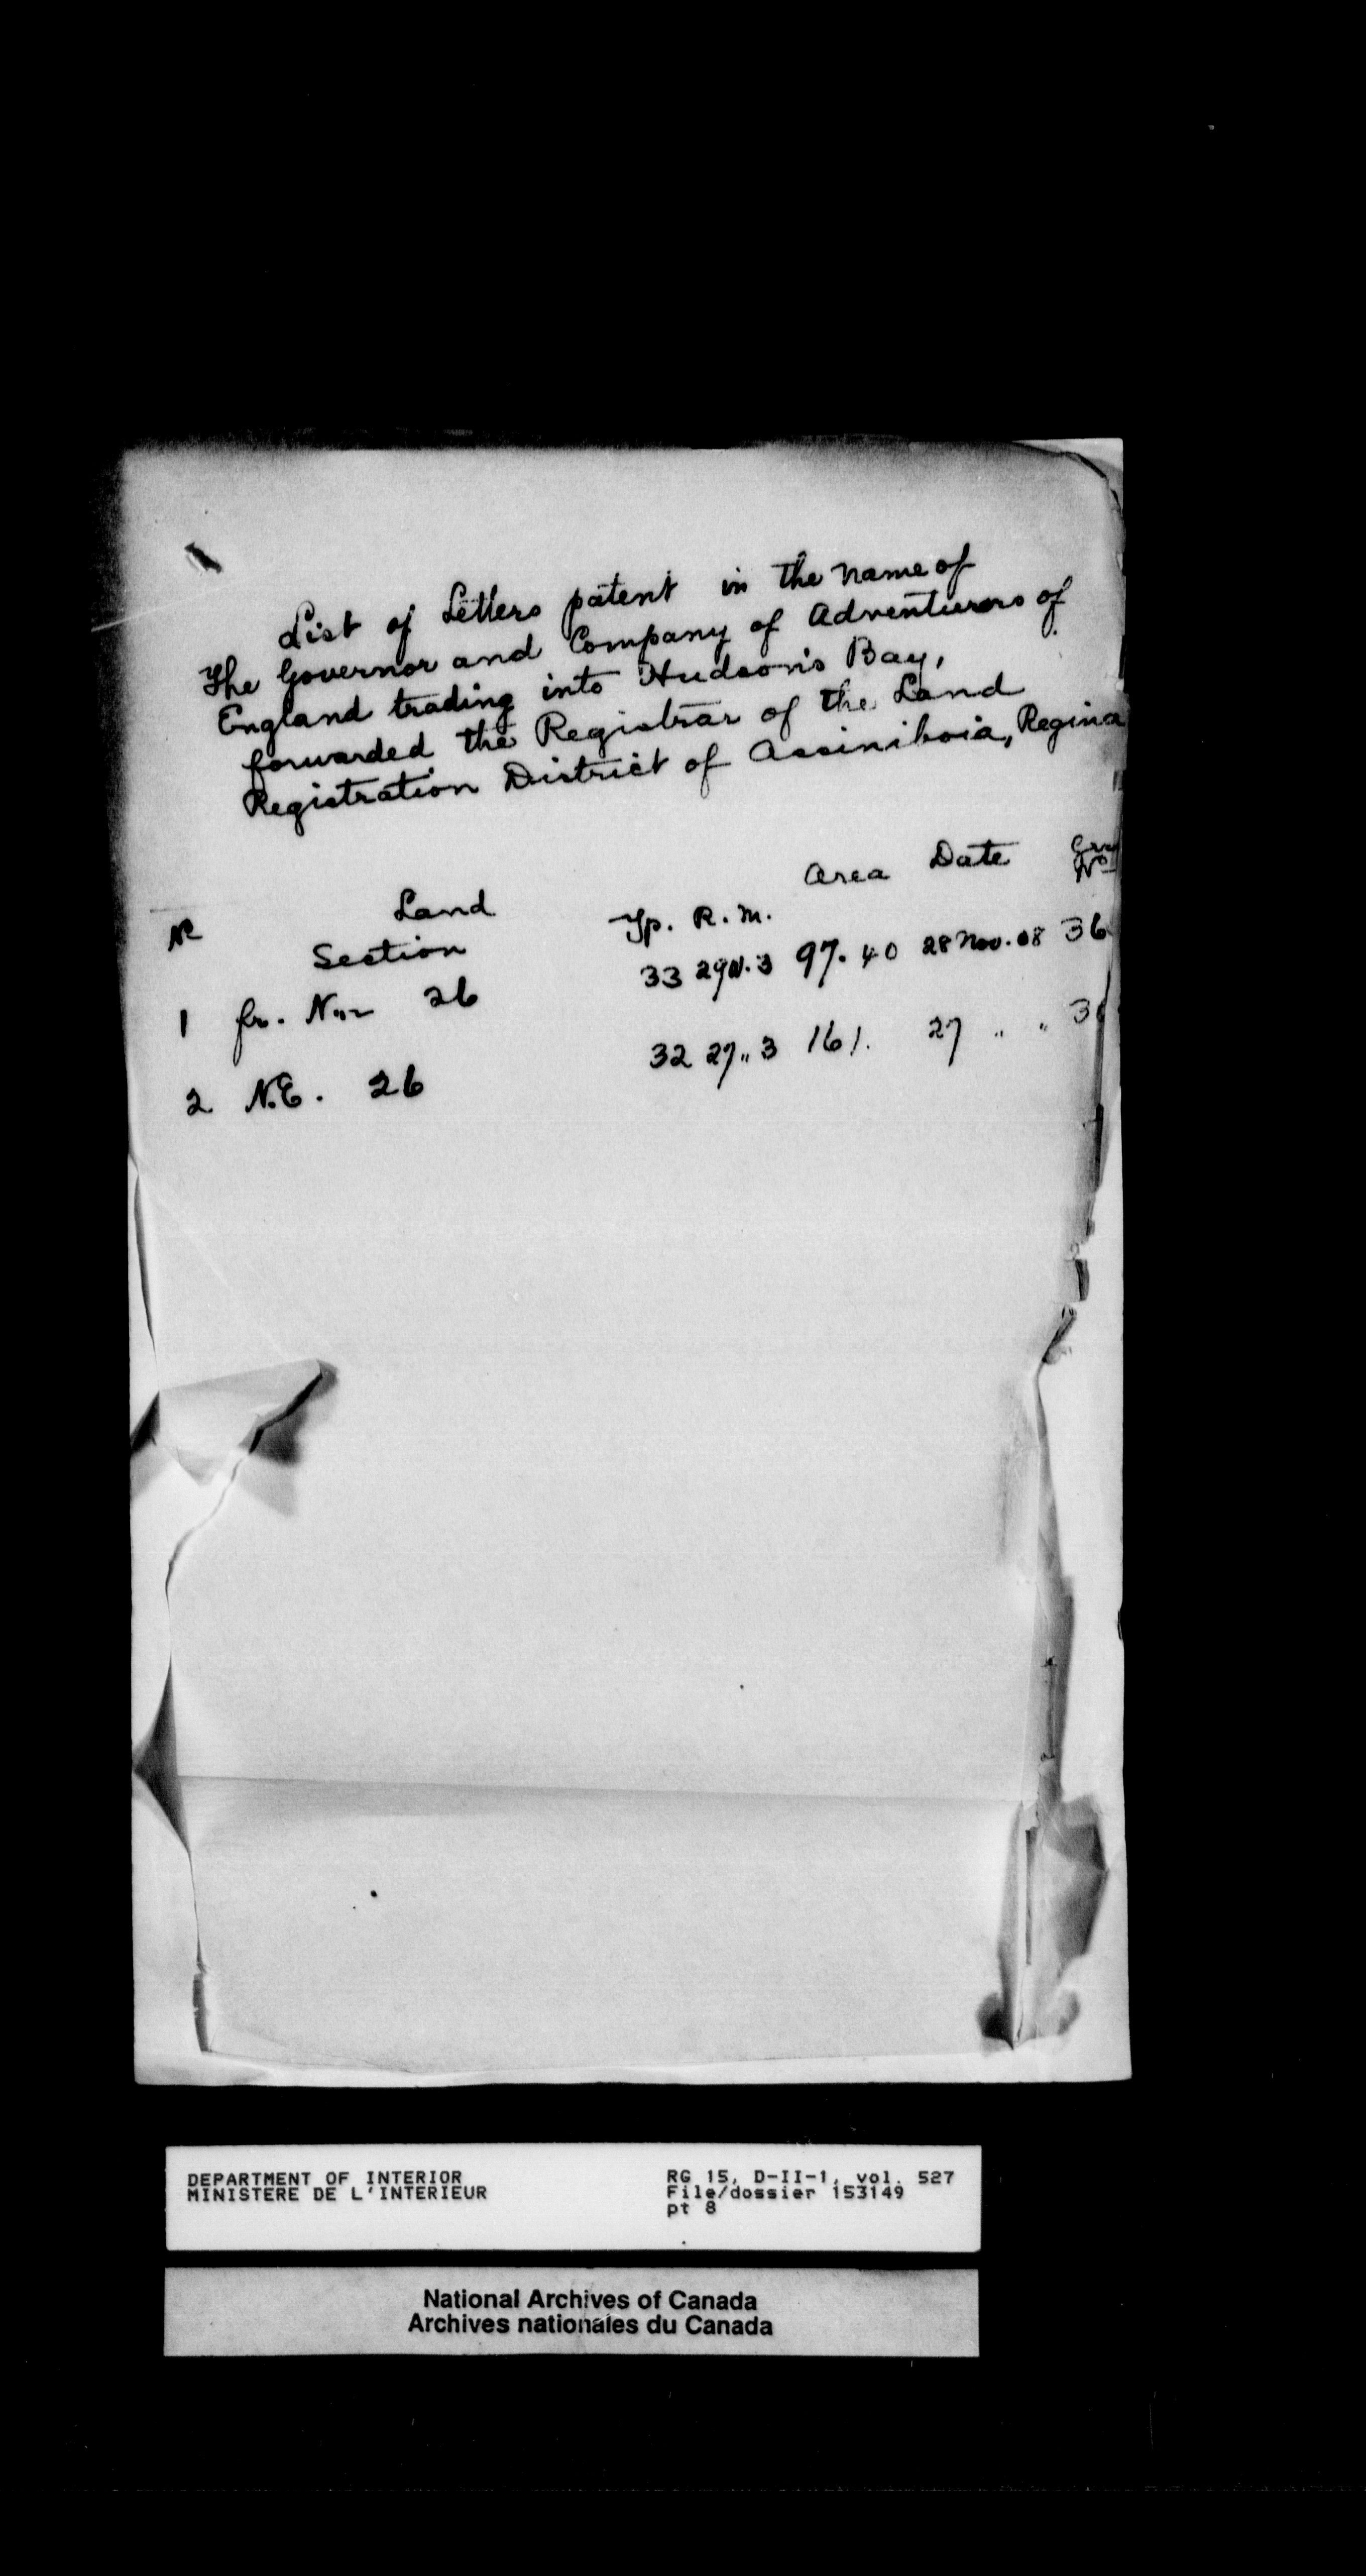 List of Letters patent in the name of
The Governor and Company of Adventurers of
England trading into Hudson's Bay,
forwarded the Registrar of the Land
Registration District of Assiniboia, Regina
No Land Area Date No
Section Tp. R. M.
1 fr. 26 33 29 W. 3 97. 40 28 Nov. 08 36
2 N.E. 26 32 27 " 3 161. 27 " "
DEPARTMENT OF INTERIOR
MINISTERE DE L'INTERIEUR
RG 15, D-II-1, vol. 527
File/dossier 153149
pt 8
National Archives of Canada
Archives nationales du Canada